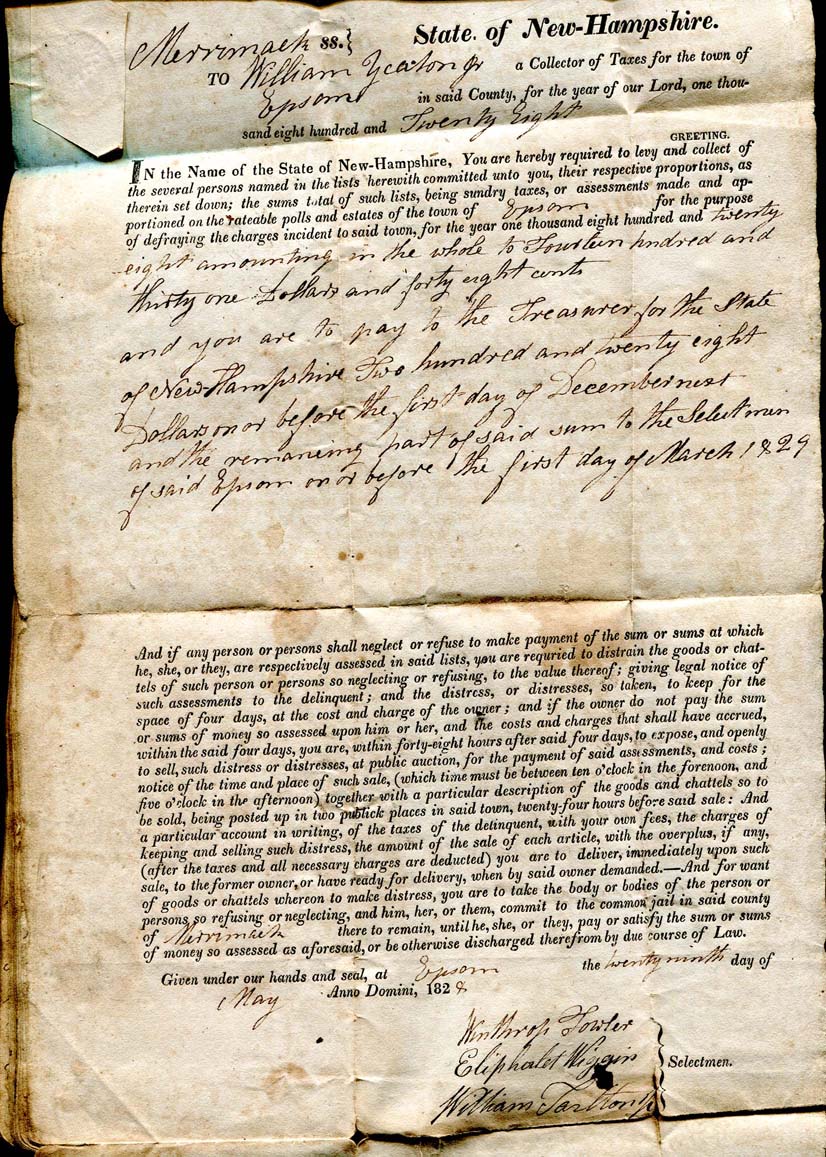 Merrimack ss.} State of New-Hampshire.
TO William Yeaton Jr a Collector of Taxes for the town of
Epsom in said County, for the year of our Lord, one thou-
sand eight hundred and Twenty Eight
GREETING.
IN the Name of the State of New-Hampshire, You are hereby required to levy and collect of
the several persons named in the lists herewith committed unto you, their respective proportions, as
therein set down; the sums total of such lists, being sundry taxes, or assessments made and ap-
portioned on the rateable polls and estates of the town of Epsom for the purpose
of defraying the charges incident to said town, for the year one thousand eight hundred and twenty
eight amounting in the whole to Fourteen hndred and
thirty one Dollars and forty eight cents
and you are to pay to the Treasurer for the State
of New-Hampshire Two hundred and twenty eight
Dollars on or before the first day of December next
and the remaneing part of said sum to the Selectmen
of said Epsom on or before the first day of March 1829
And if any person or persons shall neglect or refuse to make payment of the sum or sums at which
he, she, or they, are respectively assessed in said lists, you are requried to distrain the goods or chat-
tels of such person or persons so neglecting or refusing, to the value thereof; giving legal notice of
such assessments to the delinquent; and the distress, or distresses, so taken, to keep for the
space of four days, at the cost and charge of the owner; and if the owner do not pay the sum
or sums of money so assessed upon him or her, and the costs and charges that shall have accrued,
within the said four days, you are, within forty-eight hours after said four days, to expose, and openly
to sell, such distress or distresses, at public auction, for the payment of said assessments, and costs;
notice of the time and place of such sale, (which time must be between ten o'clock in the forenoon, and
five o'clock in the afternoon) together with a particular description of the goods and chattels so to
be sold, being posted up in two publick places in said town, twenty-four hours before said sale: And
a particular account in writing, of the taxes of the delinquent, with your own fees, the charges of
keeping and selling such distress, the amount of the sale of each article, with the overplus, if any,
(after the taxes and all necessary charges are deducted) you are to deliver, immediately upon such
sale, to the former owner, or have ready for delivery, when by said owner demanded.—And for want
of goods or chattels whereon to make distress, you are to take the body or bodies of the person or
persons so refusing or neglecting, and him, her, or them, commit to the common jail in said county
of Merrimack there to remain, until he, she, or they, pay or satisfy the sum or sums
of money so assessed as aforesaid, or be otherwise discharged therefrom by due course of Law.
Given under our hands and seal, at Epsom the twenty ninth day of
May Anno Domini, 1828
Winthrop Fowler
Eliphalet Wiggin
Selectmen.
William Tarlton Jr